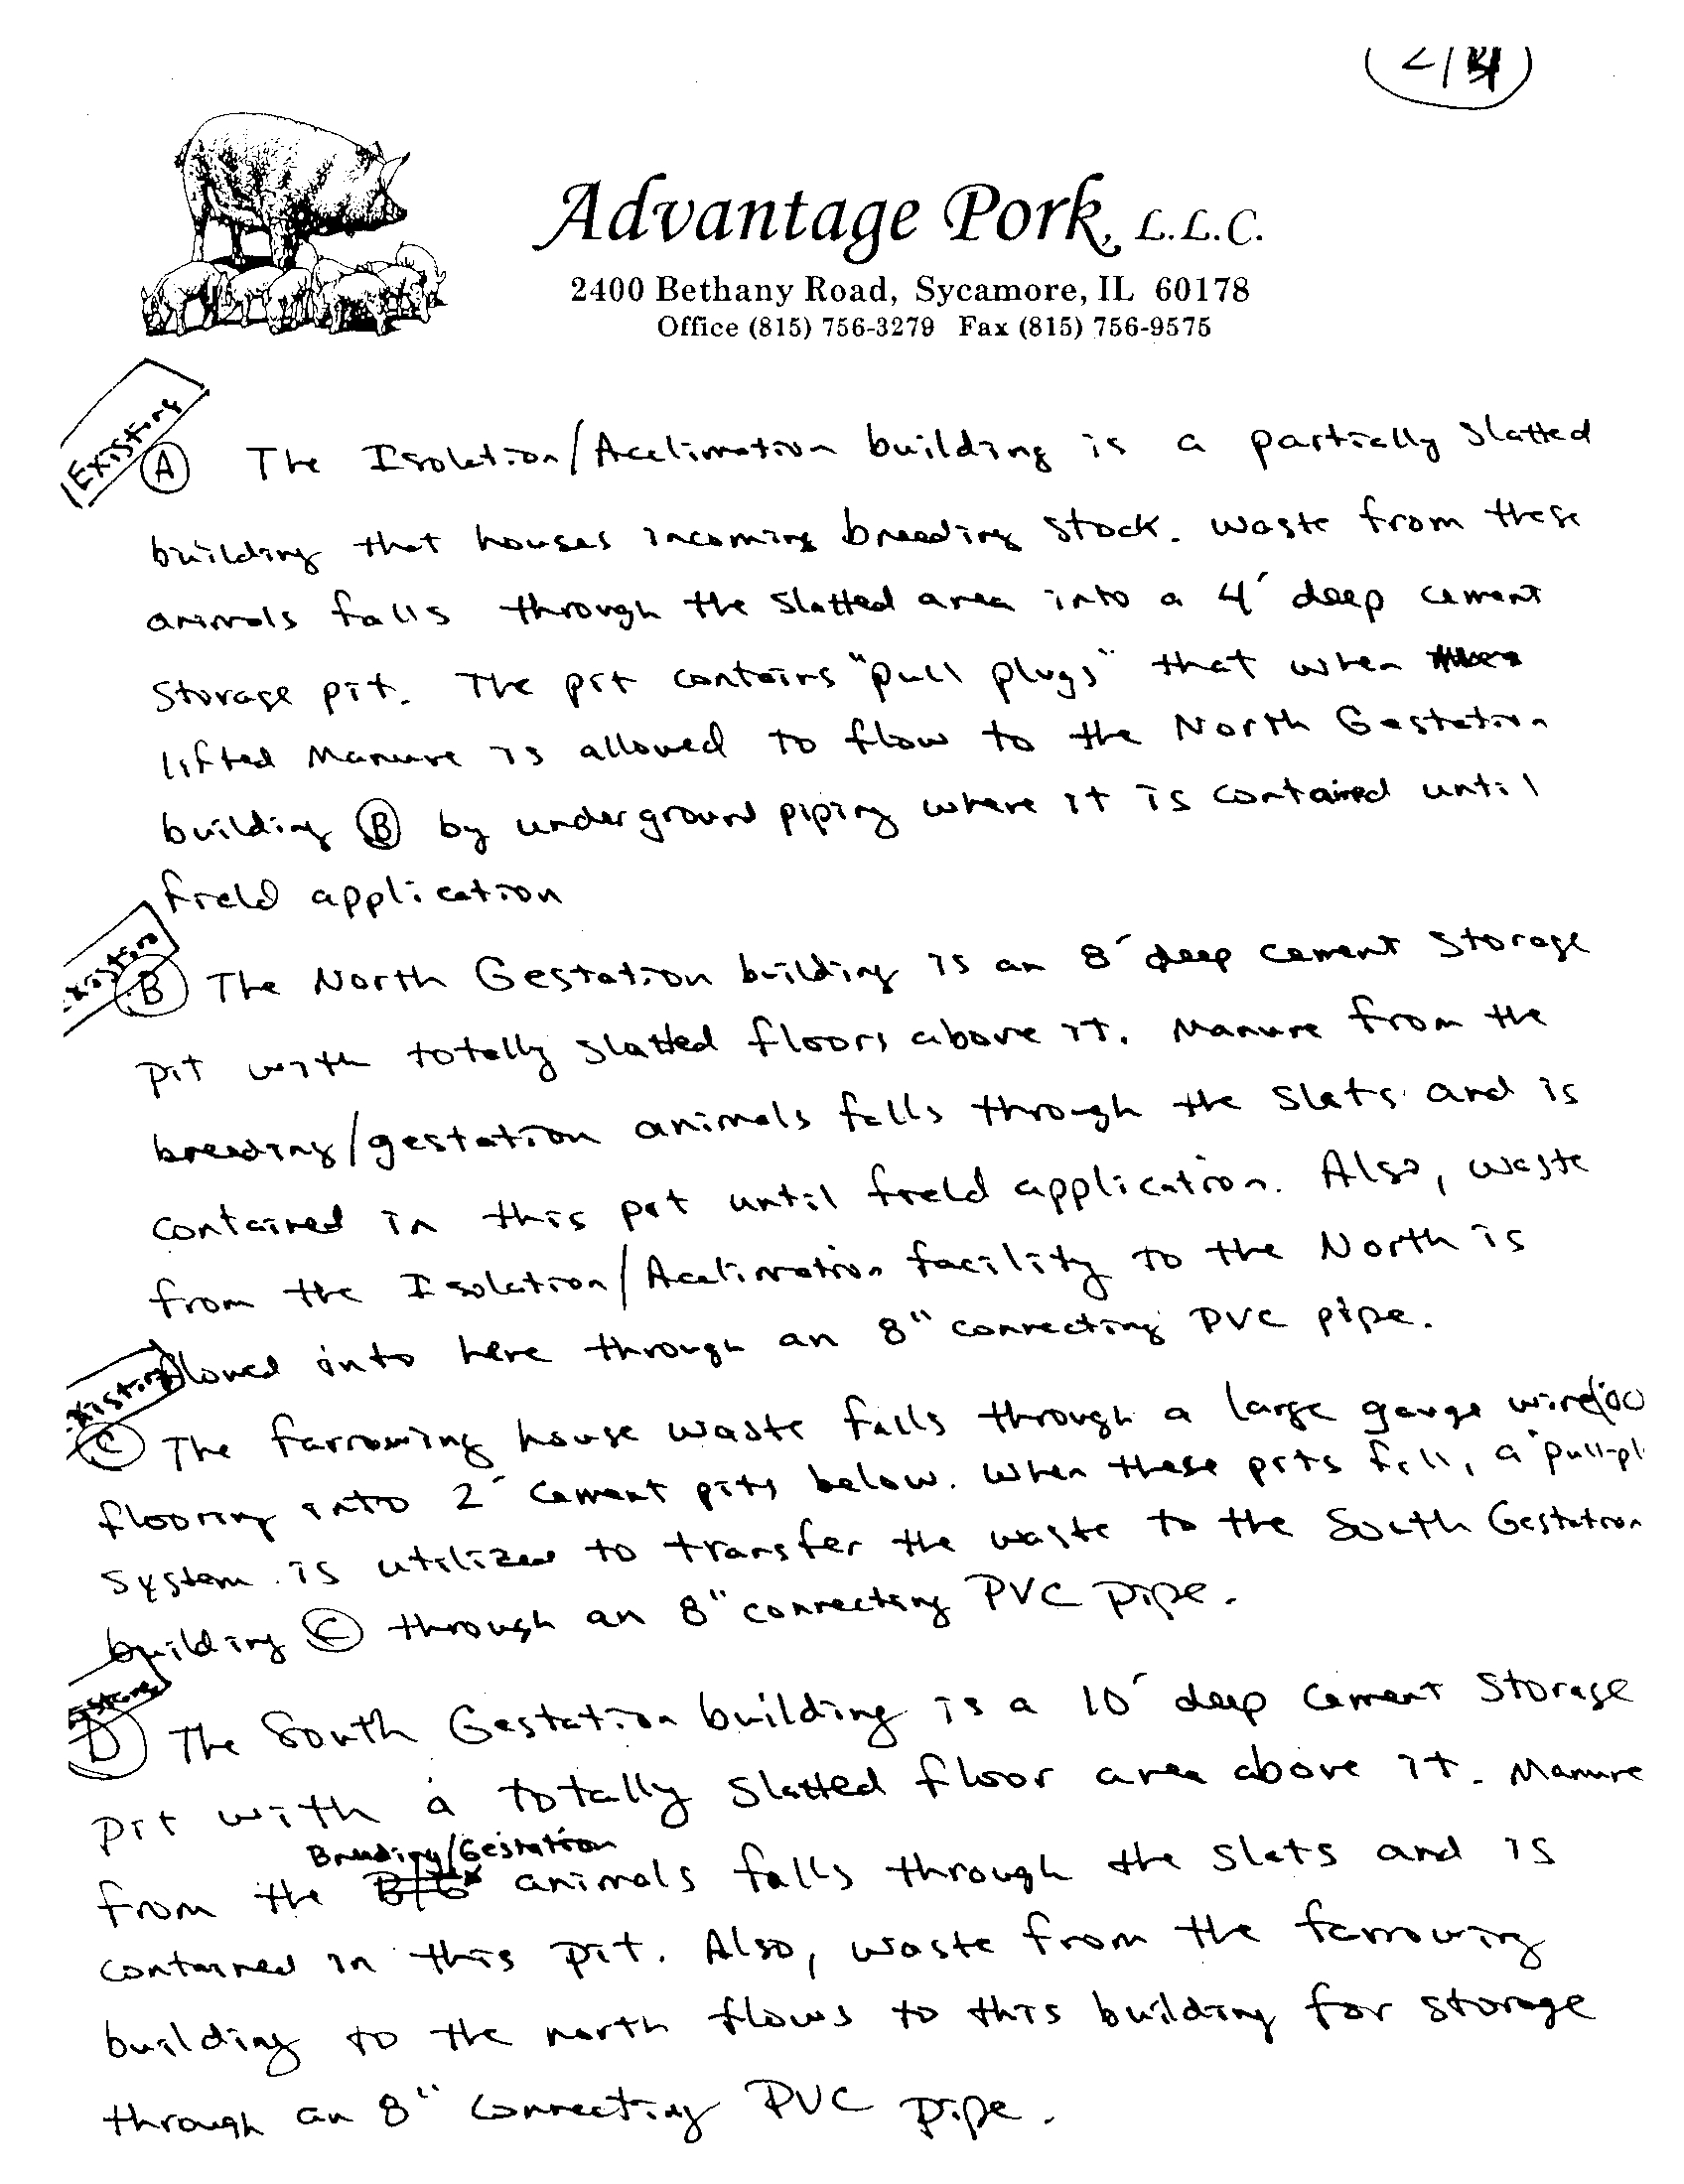 2/4
Advantage Pork, L.L.C.
2400 Bethany Road, Sycamore, IL 60178
Office (815) 756-3279 Fax (815) 756-9575
Existing
(A) The Isolation/Acclimation building is a partially slatted
building that houses incoming breeding stock. Waste from these
animals falls through the slatted area into a 4' deep cement
storage pit. The pit contains "pull plugs" that when
lifted manure is allowed to flow to the North Gestation
building (B) by underground piping where it is contained until
field application
Existin
(B) The North Gestation building is an 8' deep cement storage
pit with totally slatted floors above it. Manure from the
breeding/gestation animals falls through the slats and is
contained in this pit until field application. Also, waste
from the Isolation/Acclimation facility to the North is
flowed into here through an 8" connecting PVC pipe.
xisting
(C) The farrowing house waste falls through a large gauge wire
flooring into 2' cement pits below. When these pits fill, a "pull-pl
system is utilized to transfer the waste to the South Gestation
building (C) through an 8" connecting PVC pipe.
isting
(D) The South Gestation building is a 10' deep cement storage
pit with a totally slatted floor area above it. Manure
Breeding/Gestation
from the animals falls through the slats and is
contained in this pit. Also, waste from the farrowing
building to the north flows to this building for storage
through an 8" connecting PVC pipe.